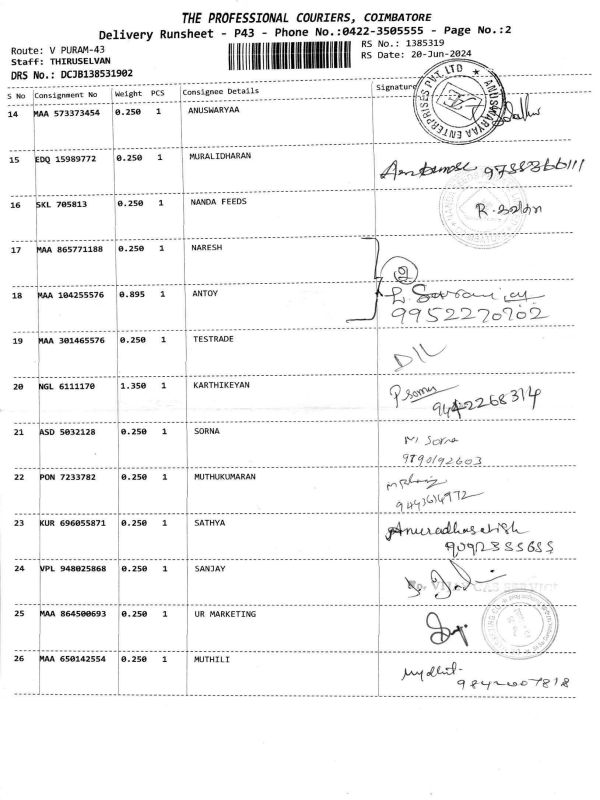 THE PROFESSIONAL COURIERS, COIMBATORE
Delivery Runsheet - P43 - Phone No.:0422-3505555 - Page No.:2
Route: V PURAM-43
RS No.: 1385319
Staff: THIRUSELVAN
RS Date: 20-Jun-2024
DRS No.: DCJB138531902
S No Consignment No Weight PCS Consignee Details Signature
ANUSWARYAA ENTERPRISES PVT. LTD
14 MAA 573373454 0.250 1 ANUSWARYAA
15 EDQ 15989772 0.250 1 MURALIDHARAN
16 SKL 705813 0.250 1 NANDA FEEDS
17 MAA 865771188 0.250 1 NARESH
2
18 MAA 104255576 0.895 1 ANTOY
9952270702
19 MAA 301465576 0.250 1 TESTRADE
D/L
20 NGL 6111170 1.350 1 KARTHIKEYAN
9442268314
21 ASD 5032128 0.250 1 SORNA
M. Sorna
9790192603
22 PON 7233782 0.250 1 MUTHUKUMARAN
23 KUR 696055871 0.250 1 SATHYA
Anuradhasatish
24 VPL 948025868 0.250 1 SANJAY
25 MAA 864500693 0.250 1 UR MARKETING
26 MAA 650142554 0.250 1 MUTHILI